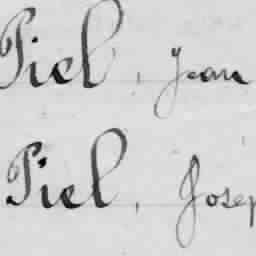 Piel, Jean
Piel, Josep